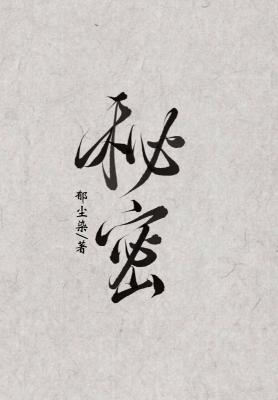 秘密
郁尘染/著